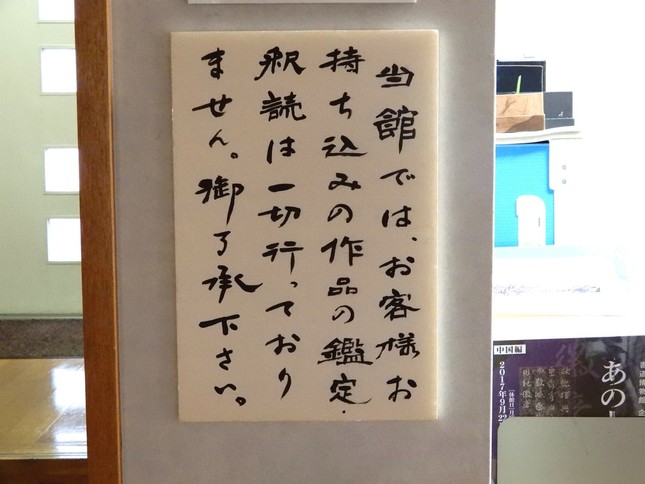 当館では、お客様お
持ち込みの作品の鑑定・
釈読は一切行っており
ません。御了承下さい。
中国編
2017年9月22
あの